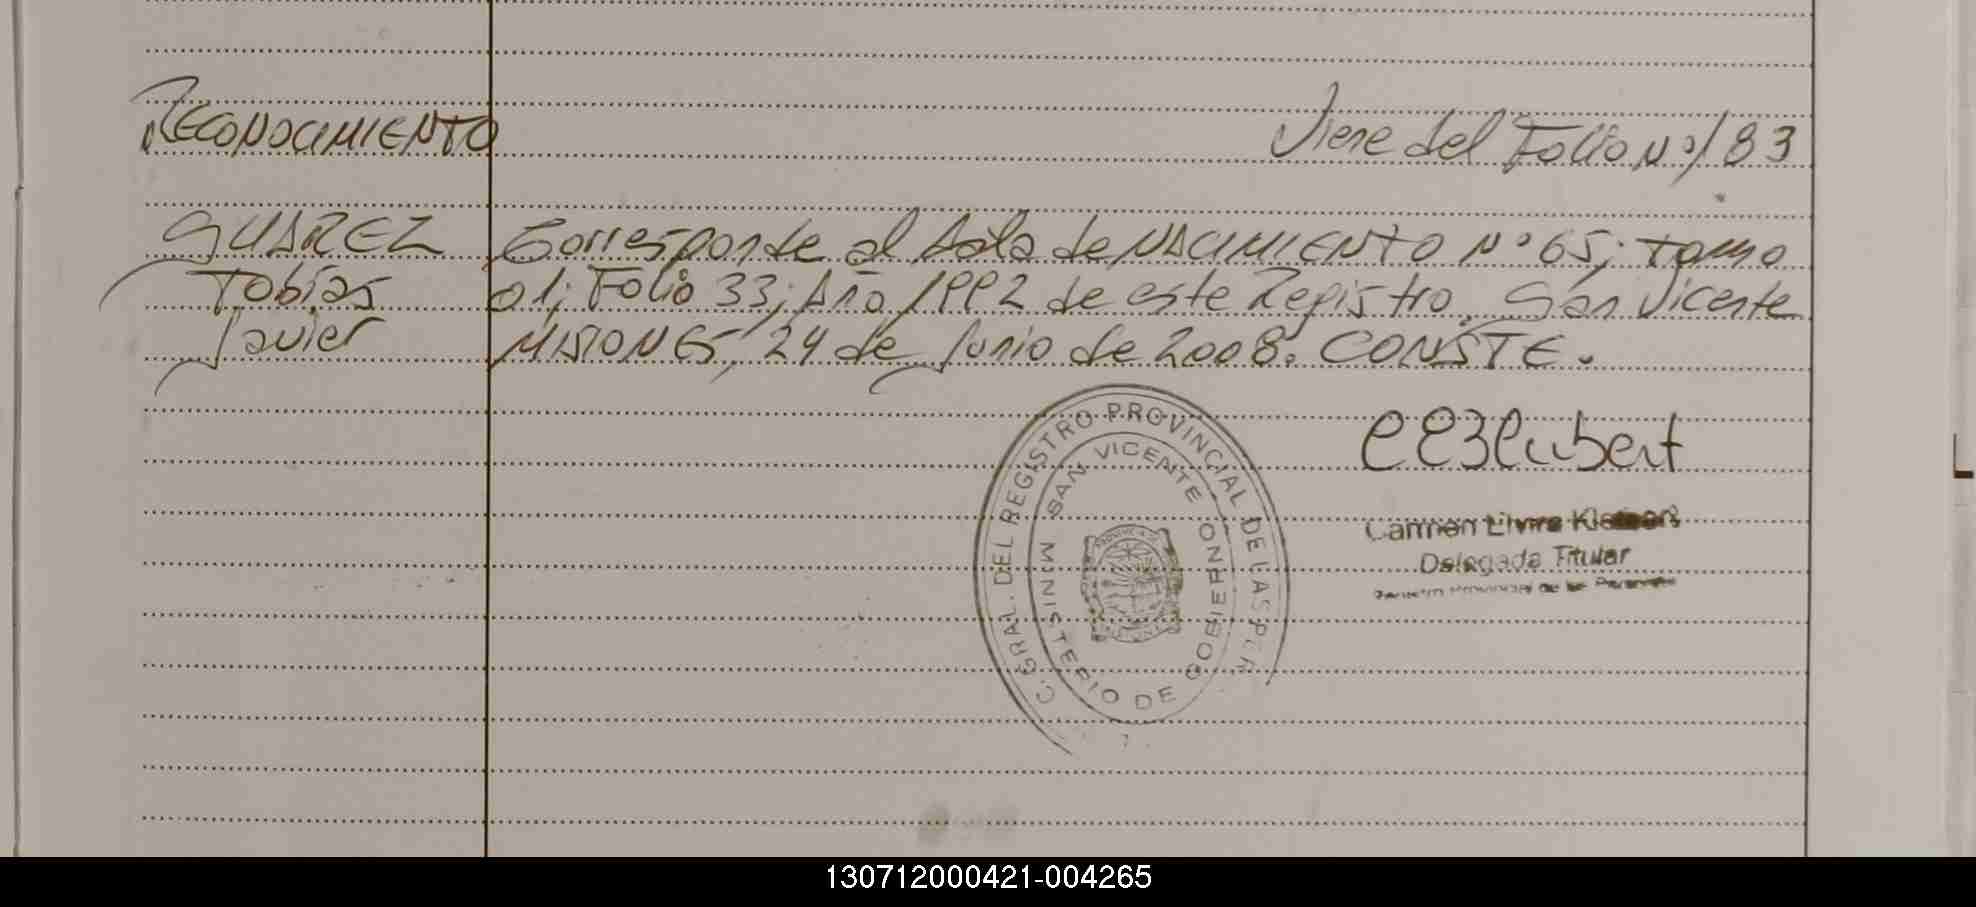 RECONOCIMIENTO
Viene del Folio Nº/83
SUAREZ
Tobias
Javier
Corresponde al Acta de NACIMIENTO Nº 65; Tomo
01; Folio 33; Año 1992 de este Registro. San Vicente
MISIONES, 24 de Junio de 2008. CONSTE.
C. GRAL. DEL REGISTRO PROVINCIAL DE LAS PER
SAN VICENTE
MINISTERIO DE GOBIERNO
Carmen Elvira
Delegada Titular
Provincial de las
130712000421-004265